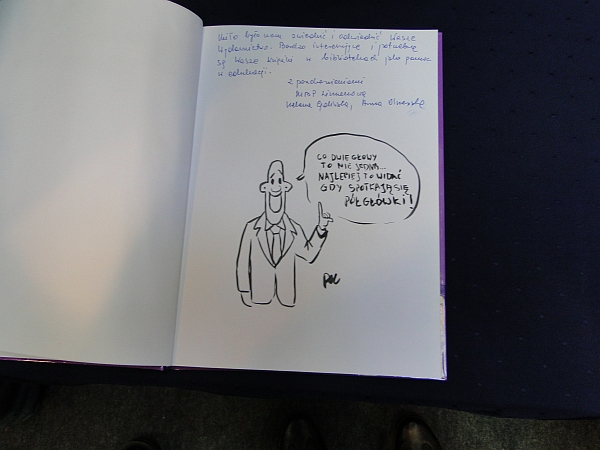 Miło było nam zwiedzić i odwiedzić Wasze
Wydawnictwo. Bardzo interesujące i potrzebne
są Wasze książki w bibliotekach jako pomoc
w edukacji.
Z pozdrowieniami
Limanowa
Anna
CO DWIE GŁOWY
TO NIE JEDNA...
NAJLEPIEJ TO WIDAĆ
GDY SPOTKAJĄ SIĘ
PÓŁGŁÓWKI!